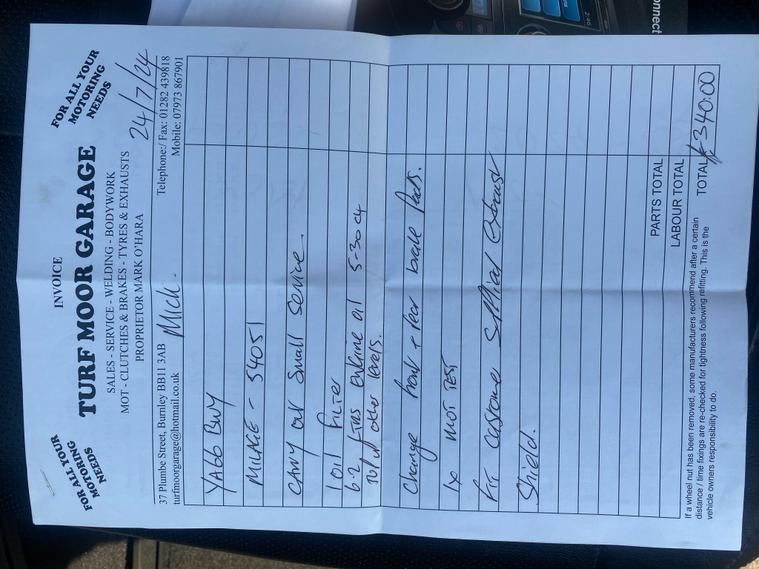 onnect
INVOICE
FOR ALL YOUR MOTORING NEEDS
TURF MOOR GARAGE
FOR ALL YOUR MOTORING NEEDS
SALES - SERVICE - WELDING - BODYWORK
MOT - CLUTCHES & BRAKES - TYRES & EXHAUSTS
PROPRIETOR MARK O'HARA
24/7/24
37 Plumbe Street, Burnley BB11 3AB
Telephone:/ Fax: 01282 439818
turfmoorgarage@hotmail.co.uk
Mobile: 07973 867901
Mick.
YA66 BWY
MILAGE - 54051
CARRY out Small Service.
1 OIL FILTER
6.2 LTRS ENGINE oil 5-30 C4
Top up other levels.
Change front + rear brake Pads.
1x MOT TEST
Fit Customer Supplied Exhaust
Shield.
PARTS TOTAL
LABOUR TOTAL
TOTAL £340:00
If a wheel nut has been removed, some manufacturers recommend after a certain
distance / time fixings are re-checked for tightness following refitting. This is the
vehicle owners responsibility to do.